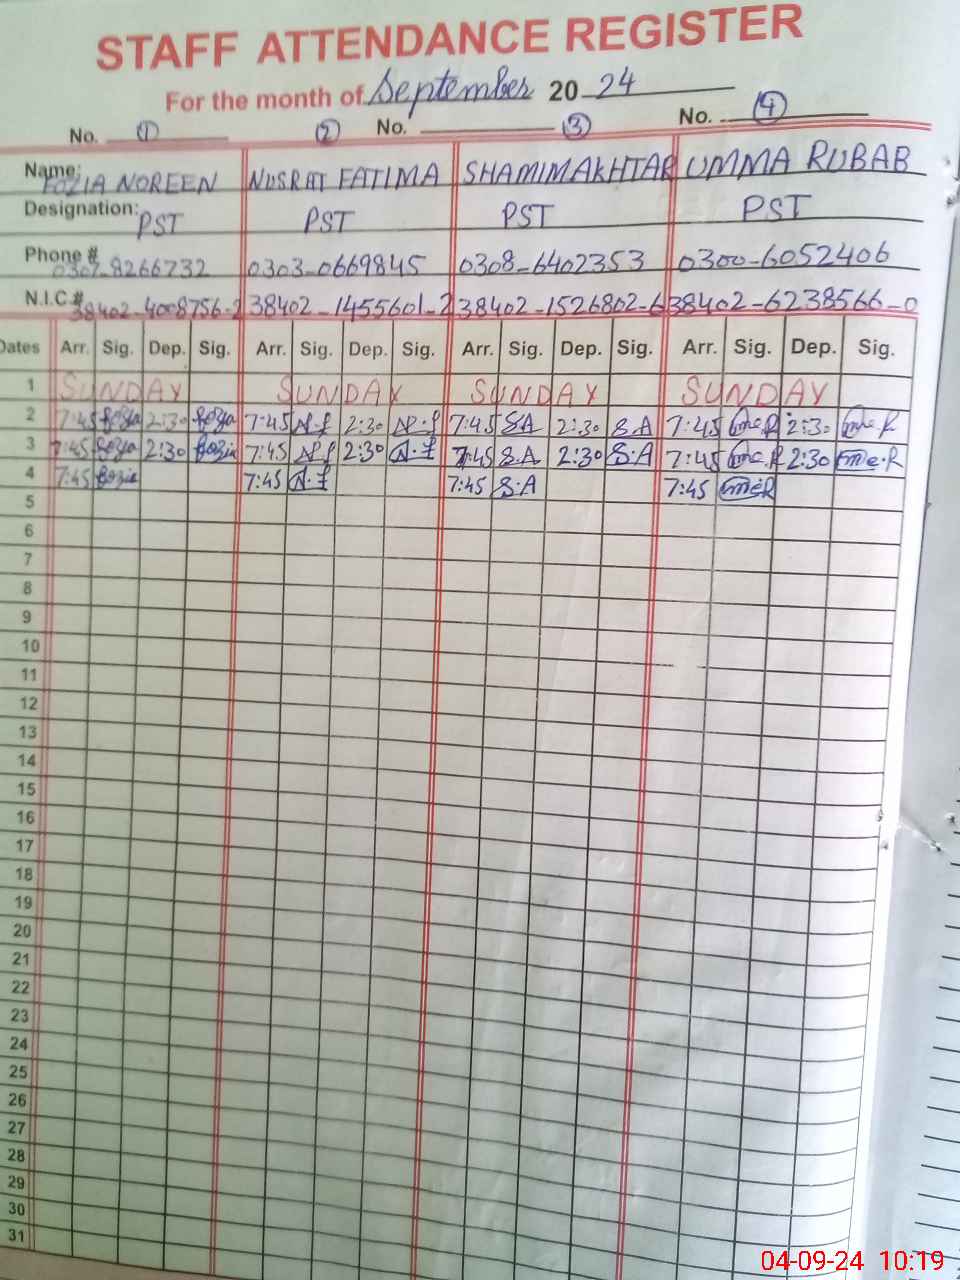 STAFF ATTENDANCE REGISTER
For the month of September 2024
No. 1 2 No. 3 No. 4
Name: FOZIA NOREEN NUSRAT FATIMA SHAMIM AKHTAR UMMA RUBAB
Designation: PST PST PST PST
Phone # 0307-8266732 0303-0669845 0308-6402353 0300-6052406
N.I.C # 38402-4008756-2 38402-1455601-2 38402-1526802-6 38402-6238566-0
Dates Arr. Sig. Dep. Sig. Arr. Sig. Dep. Sig. Arr. Sig. Dep. Sig. Arr. Sig. Dep. Sig.
1 SUNDAY SUNDAY SUNDAY SUNDAY
2 7:45 fozia 2:30 fozia 7:45 N.f 2:30 N.f 7:45 S.A 2:30 S.A 7:45 2:30
3 7:45 fozia 2:30 fozia 7:45 N.f 2:30 N.f 7:45 S.A 2:30 S.A 7:45 2:30
4 7:45 fozia 7:45 N.f 7:45 S.A 7:45
5
6
7
8
9
10
11
12
13
14
15
16
17
18
19
20
21
22
23
24
25
26
27
28
29
30
31
04-09-24 10:19